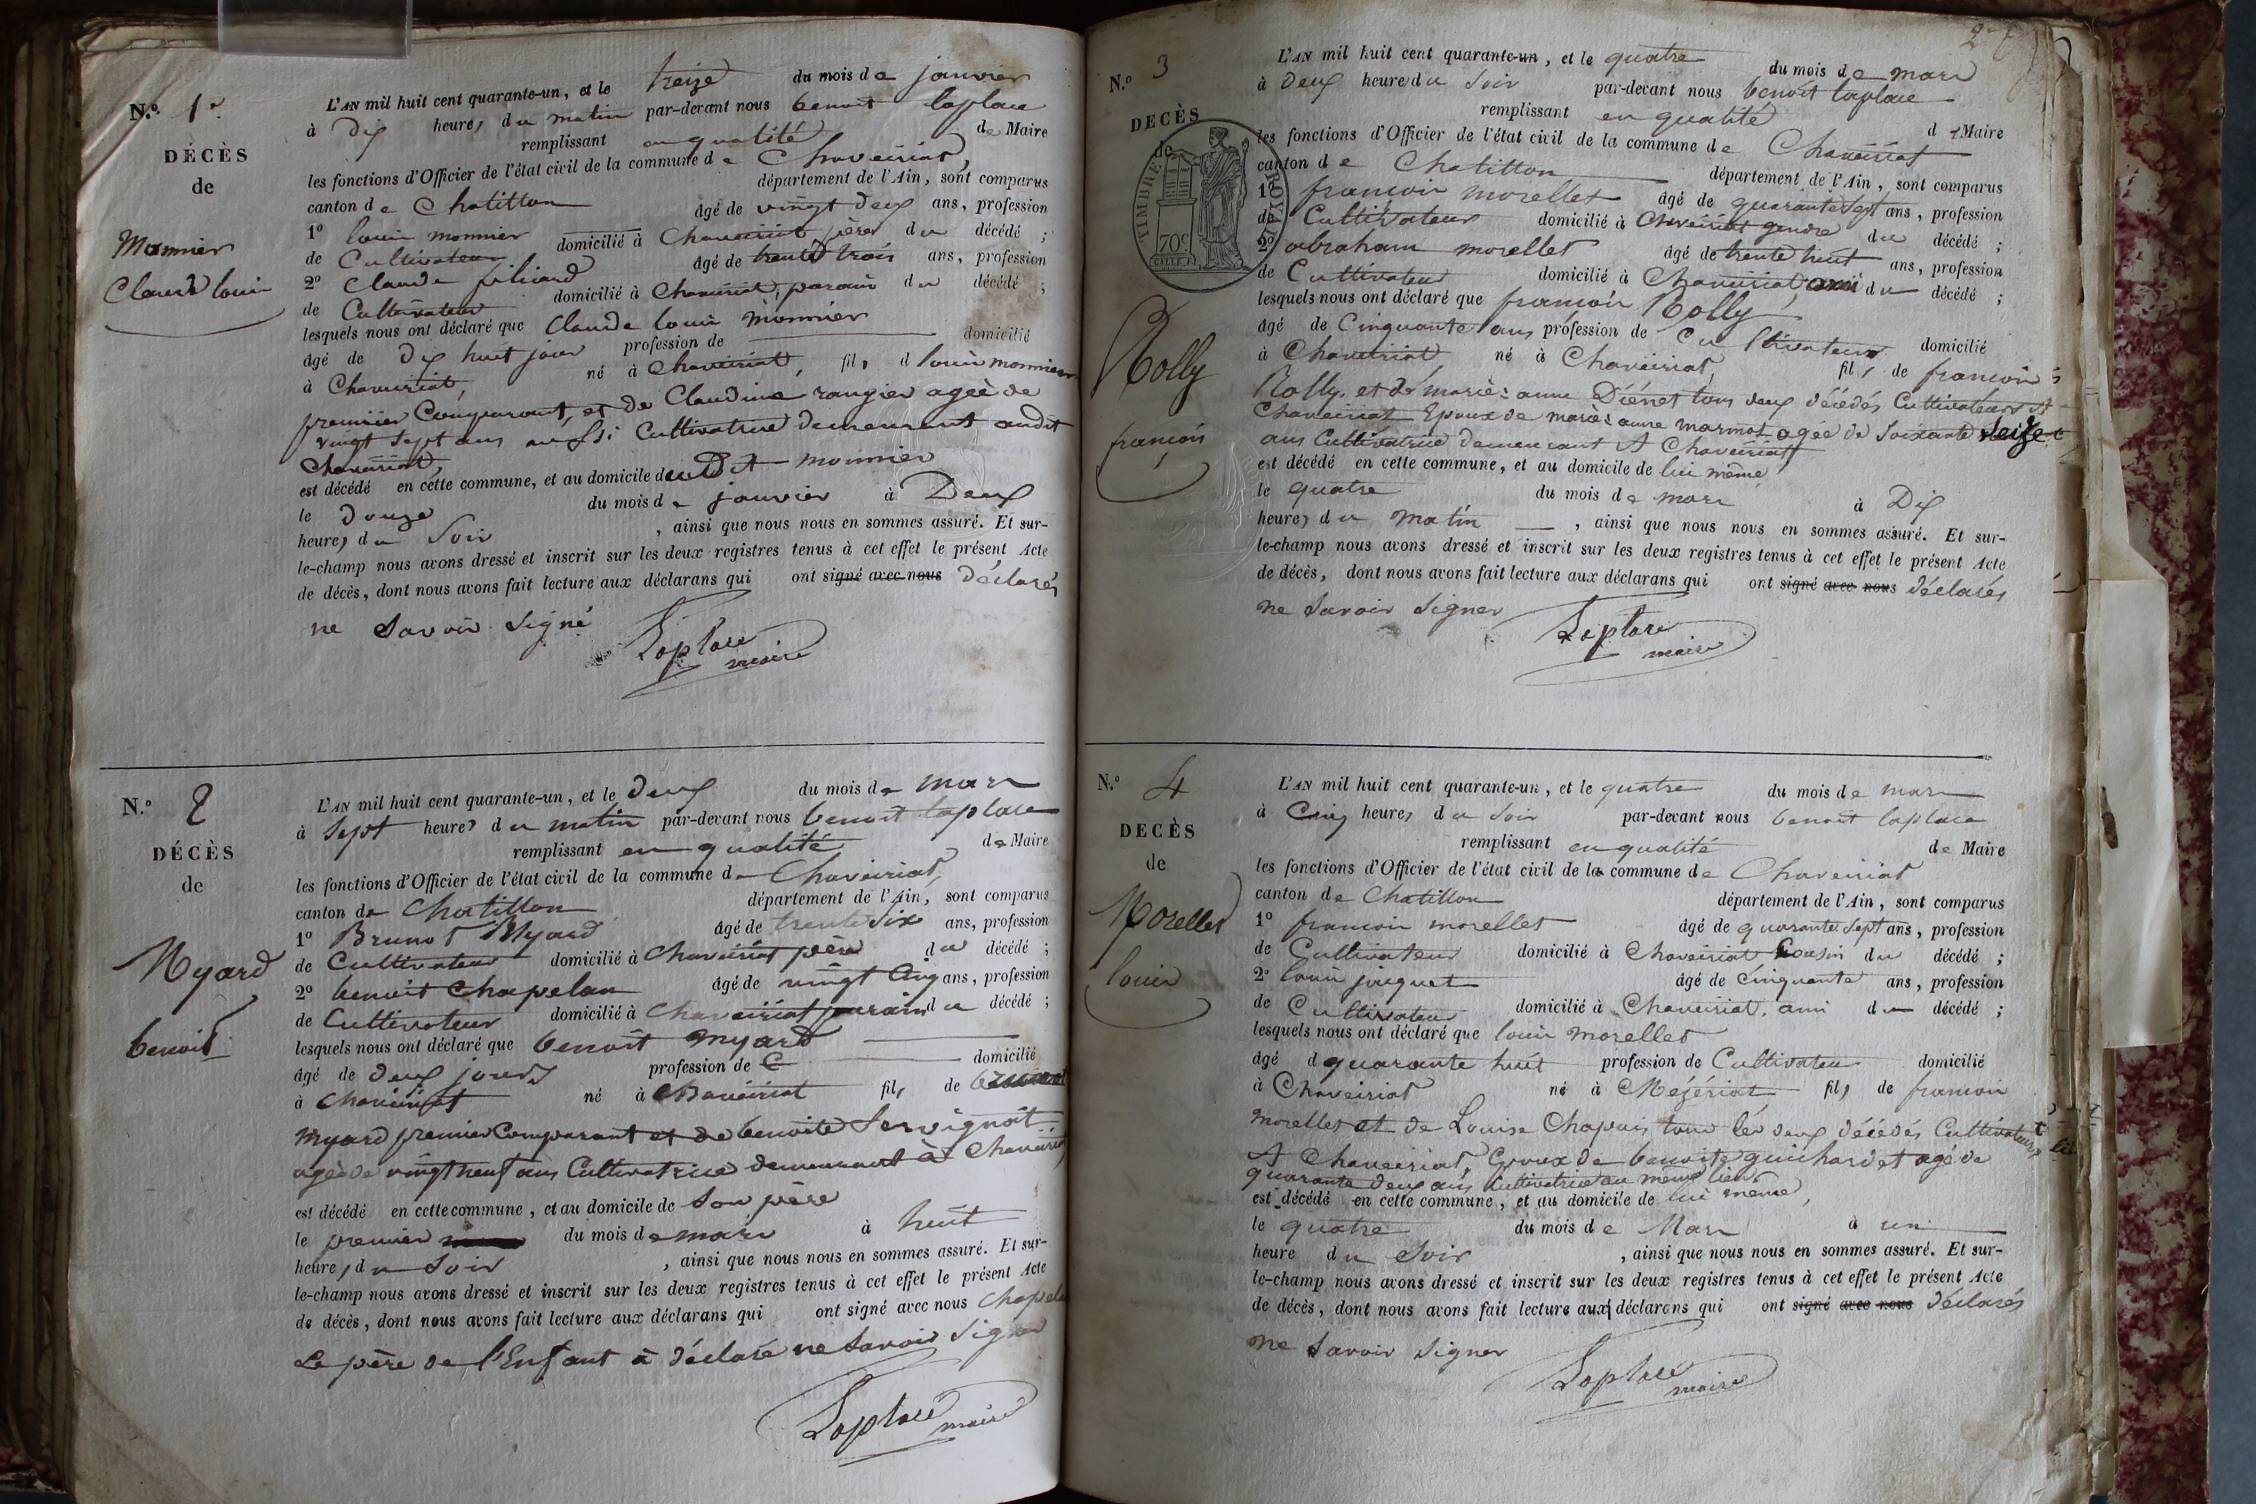 N.° 1er
DÉCÈS
de
Monnier
Claude louis
L'AN mil huit cent quarante-un, et le treize du mois de janvier
à Dix heures du matin par-devant nous benoit laplace
remplissant en qualité de Maire
les fonctions d'Officier de l'état civil de la commune de Chaveiriat,
canton de Chatillon département de l'Ain, sont comparus
1° louis monnier âgé de vingt deux ans, profession
de Cultivateur domicilié à Chaveiriat père du décédé ;
2° Claude filiard âgé de trente trois ans, profession
de Cultivateur domicilié à Chaveiriat, parain du décédé ;
lesquels nous ont déclaré que Claude louis monnier
âgé de Dix huit jour profession de domicilié
à Chaveiriat, né à Chaveiriat, fils d louis monnier
premier Comparant, et de Claudine rangier ageè de
vingt sept ans aussi Cultivatrice demeurant audit
Chaveiriat,
est décédé en cette commune, et au domicile dudit monnier
le douze du mois de janvier à Deux
heures du Soir , ainsi que nous nous en sommes assuré. Et sur-
le-champ nous avons dressé et inscrit sur les deux registres tenus à cet effet le présent Acte
de décès, dont nous avons fait lecture aux déclarans qui ont signé avec nous déclarés
ne Savoir Signé
Laplace
maire
N.° 2
DÉCÈS
de
Myard
benoit
L'AN mil huit cent quarante-un, et le deux du mois de mars
à Sept heures du matin par-devant nous benoit laplace
remplissant en qualité de Maire
les fonctions d'Officier de l'état civil de la commune de Chaveiriat,
canton de Chatillon département de l'Ain, sont comparus
1° Brunot Myard âgé de trente Six ans, profession
de Cultivateur domicilié à Chaveiriat père du décédé ;
2° benoit Chapelan âgé de vingt Cinq ans, profession
de Cultivateur domicilié à Chaveiriat parain du décédé ;
lesquels nous ont déclaré que benoit myard
âgé de deux jours profession de domicilié
à Chaveiriat né à Chaveiriat fils de
myard premier Comparant et de benoite Servignat
ageè de vingt neuf ans Cultivatrice demeurant à Chaveiriat
est décédé en cette commune, et au domicile de Son père
le premier du mois de mars à huit
heures du Soir , ainsi que nous nous en sommes assuré. Et sur-
le-champ nous avons dressé et inscrit sur les deux registres tenus à cet effet le présent Acte
de décès, dont nous avons fait lecture aux déclarans qui ont signé avec nous Chapelan
Le père de l'Enfant à déclaré ne Savoir Signer
Laplace
maire
N.° 3
DECÈS
de
TIMBRE ROYAL
70c
Rolly
françois
L'AN mil huit cent quarante-un, et le quatre du mois de mars
à Deux heures du Soir par-devant nous benoit laplace
remplissant en qualité d Maire
les fonctions d'Officier de l'état civil de la commune de Chaveiriat
canton de Chatillon département de l'Ain, sont comparus
1° françois morellet âgé de quarante Sept ans, profession
de Cultivateur domicilié à Chaveiriat gendre du décédé ;
2° abraham morellet âgé de trente huit ans, profession
de Cultivateur domicilié à Chaveiriat, ami du décédé ;
lesquels nous ont déclaré que françois Rolly
âgé de Cinquante ans profession de Cultivateur domicilié
à Chaveiriat né à Chaveiriat, fils de françois
Rolly, et de mariè: anne Diénet tous deux décédés Cultivateurs A
Chaveiriat Epoux de marie: anne marmot agée de Soixante Seize
ans Cultivatrice demeurant A Chaveiriat
est décédé en cette commune, et au domicile de lui même
le quatre du mois de mars à Dix
heures du matin , ainsi que nous nous en sommes assuré. Et sur-
le-champ nous avons dressé et inscrit sur les deux registres tenus à cet effet le présent Acte
de décès, dont nous avons fait lecture aux déclarans qui ont signé avec nous déclarés
ne Savoir Signer
Laplace
maire
N.° 4
DECÈS
de
Morellet
louis
L'AN mil huit cent quarante-un, et le quatre du mois de mars
à Cinq heures du Soir par-devant nous benoit laplace
remplissant en qualité de Maire
les fonctions d'Officier de l'état civil de la commune de Chaveiriat
canton de Chatillon département de l'Ain, sont comparus
1° françois morellet âgé de quarante Sept ans, profession
de Cultivateur domicilié à Chaveiriat Cousin du décédé ;
2° louis jouquet âgé de Cinquante ans, profession
de Cultivateur domicilié à Chaveiriat, ami du décédé ;
lesquels nous ont déclaré que louis morellet
âgé d quarante huit profession de Cultivateur domicilié
à Chaveiriat né à Mézériat fils de françois
morellet et de Louise Chapuis tous les deux décédés Cultivateurs
A Chaveiriat, Epoux de benoite guichardet agé de
quarante deux ans Cultivatrice au même lieu
est décédé en cette commune, et au domicile de lui même,
le quatre du mois de Mars à un
heure du Soir , ainsi que nous nous en sommes assuré. Et sur-
le-champ nous avons dressé et inscrit sur les deux registres tenus à cet effet le présent Acte
de décès, dont nous avons fait lecture aux déclarans qui ont signé avec nous déclarés
ne Savoir Signer
Laplace
maire